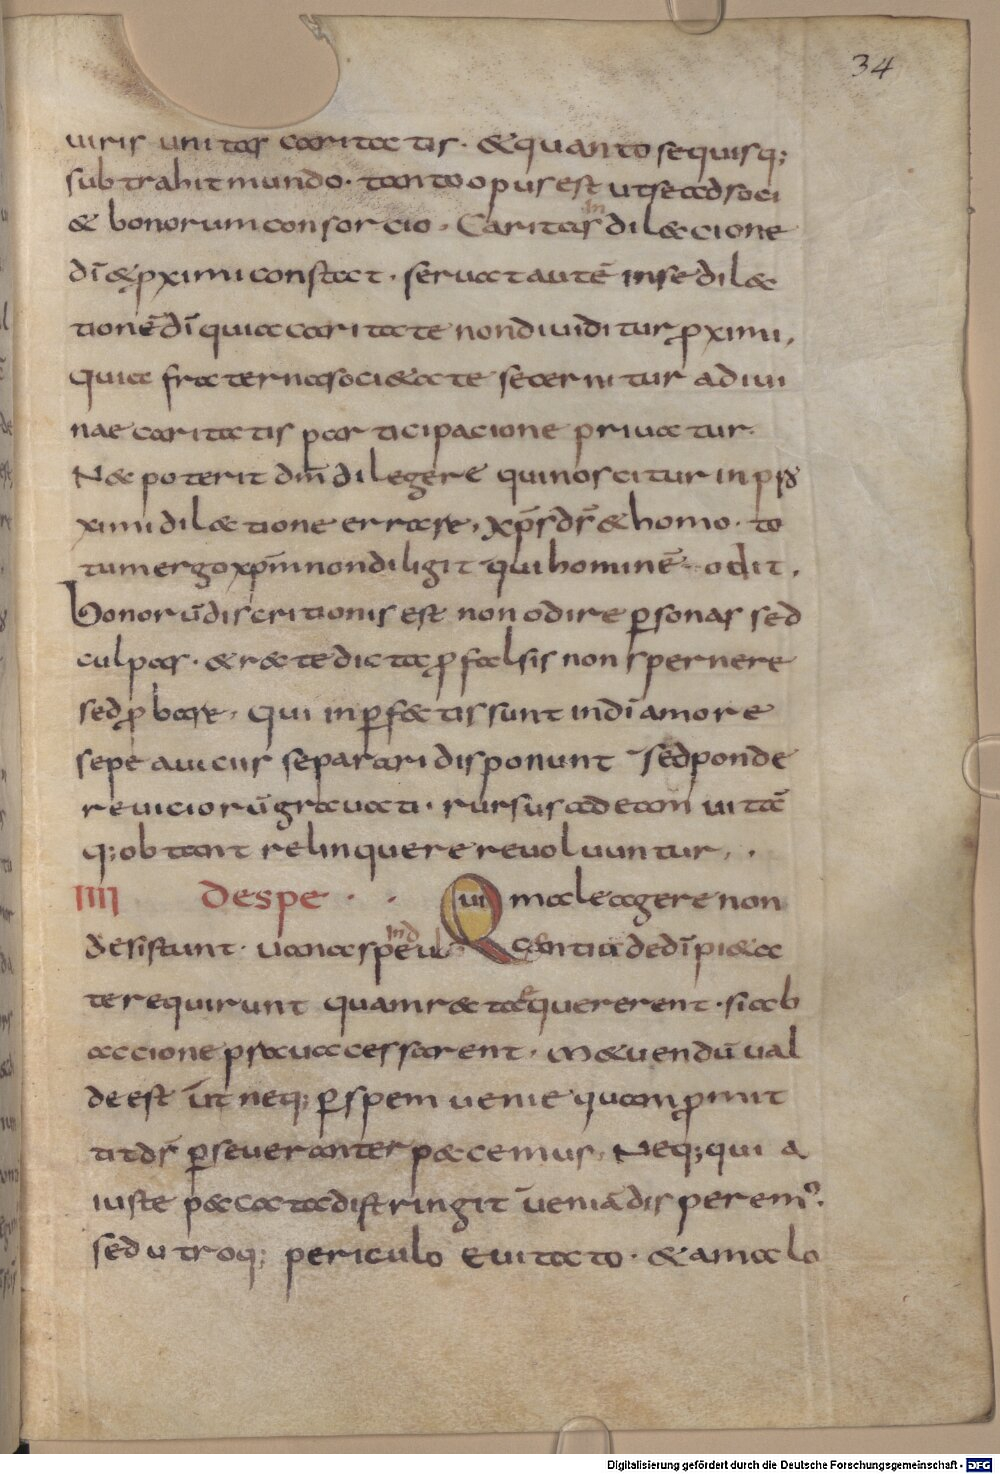 34
uiris unitas caritatis. &quanto sequisq;
subtrahit mundo. tanto opus est ut se ad soci
& bonorum consorcio. Caritas in dil&cione
dī & pximi constat. seruat autē in se dil&
tionē dī qui a caritate non diuiditur pximi.
Quia fraterna soci&ate secernitur a diui
nae caritatis participacione priuatur.
N& poterit dm̄ dilegere qui noscitur in p
ximi dil&tione errare, xp̄s ds̄ & homo. to
tum ergo xpm̄ non diligit qui hominē odit.
Bonorū discritionis est non odire psonas sed
culpas. & r&te dicta p falsis non spernere
sed pbare. Qui inpf&tis sunt in dī amore
sepe a uiciis separari disponunt sed ponde
re uiciorū grauati. rursus ad eam uitā
q; obtant relinquere reuoluuntur.
IIII De spe.. Qui male agere non
desistunt. uana spe indulgentia de dī pi&a
te requirunt quam r&tae quererent. si ab
accione praua cessarent. M&uendū ual
de est ut neq; p spem uenie quam pmit
tit ds̄ pseueranter p&cemus, Neq; qui a
iuste p&cata distringit ueniā disperem⁹.
sed utroq; periculo euitato. & a malo
Digitalisierung gefördert durch die Deutsche Forschungsgemeinschaft - DFG